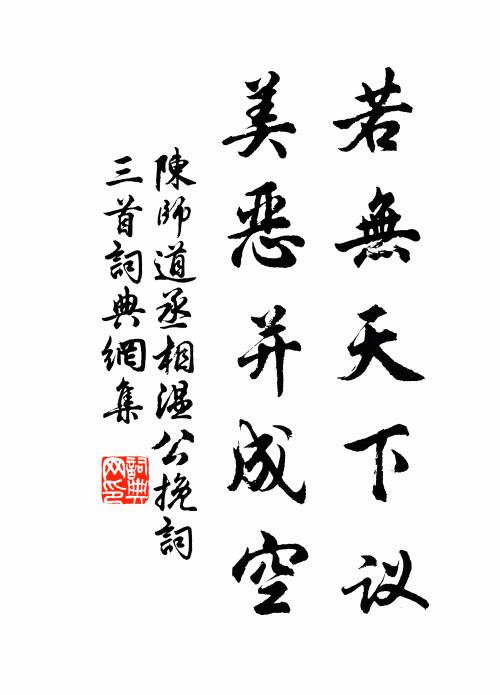 若無天下议
美恶并成空
陳師道丞相温公挽詞
三首詞典網集
詞典网印